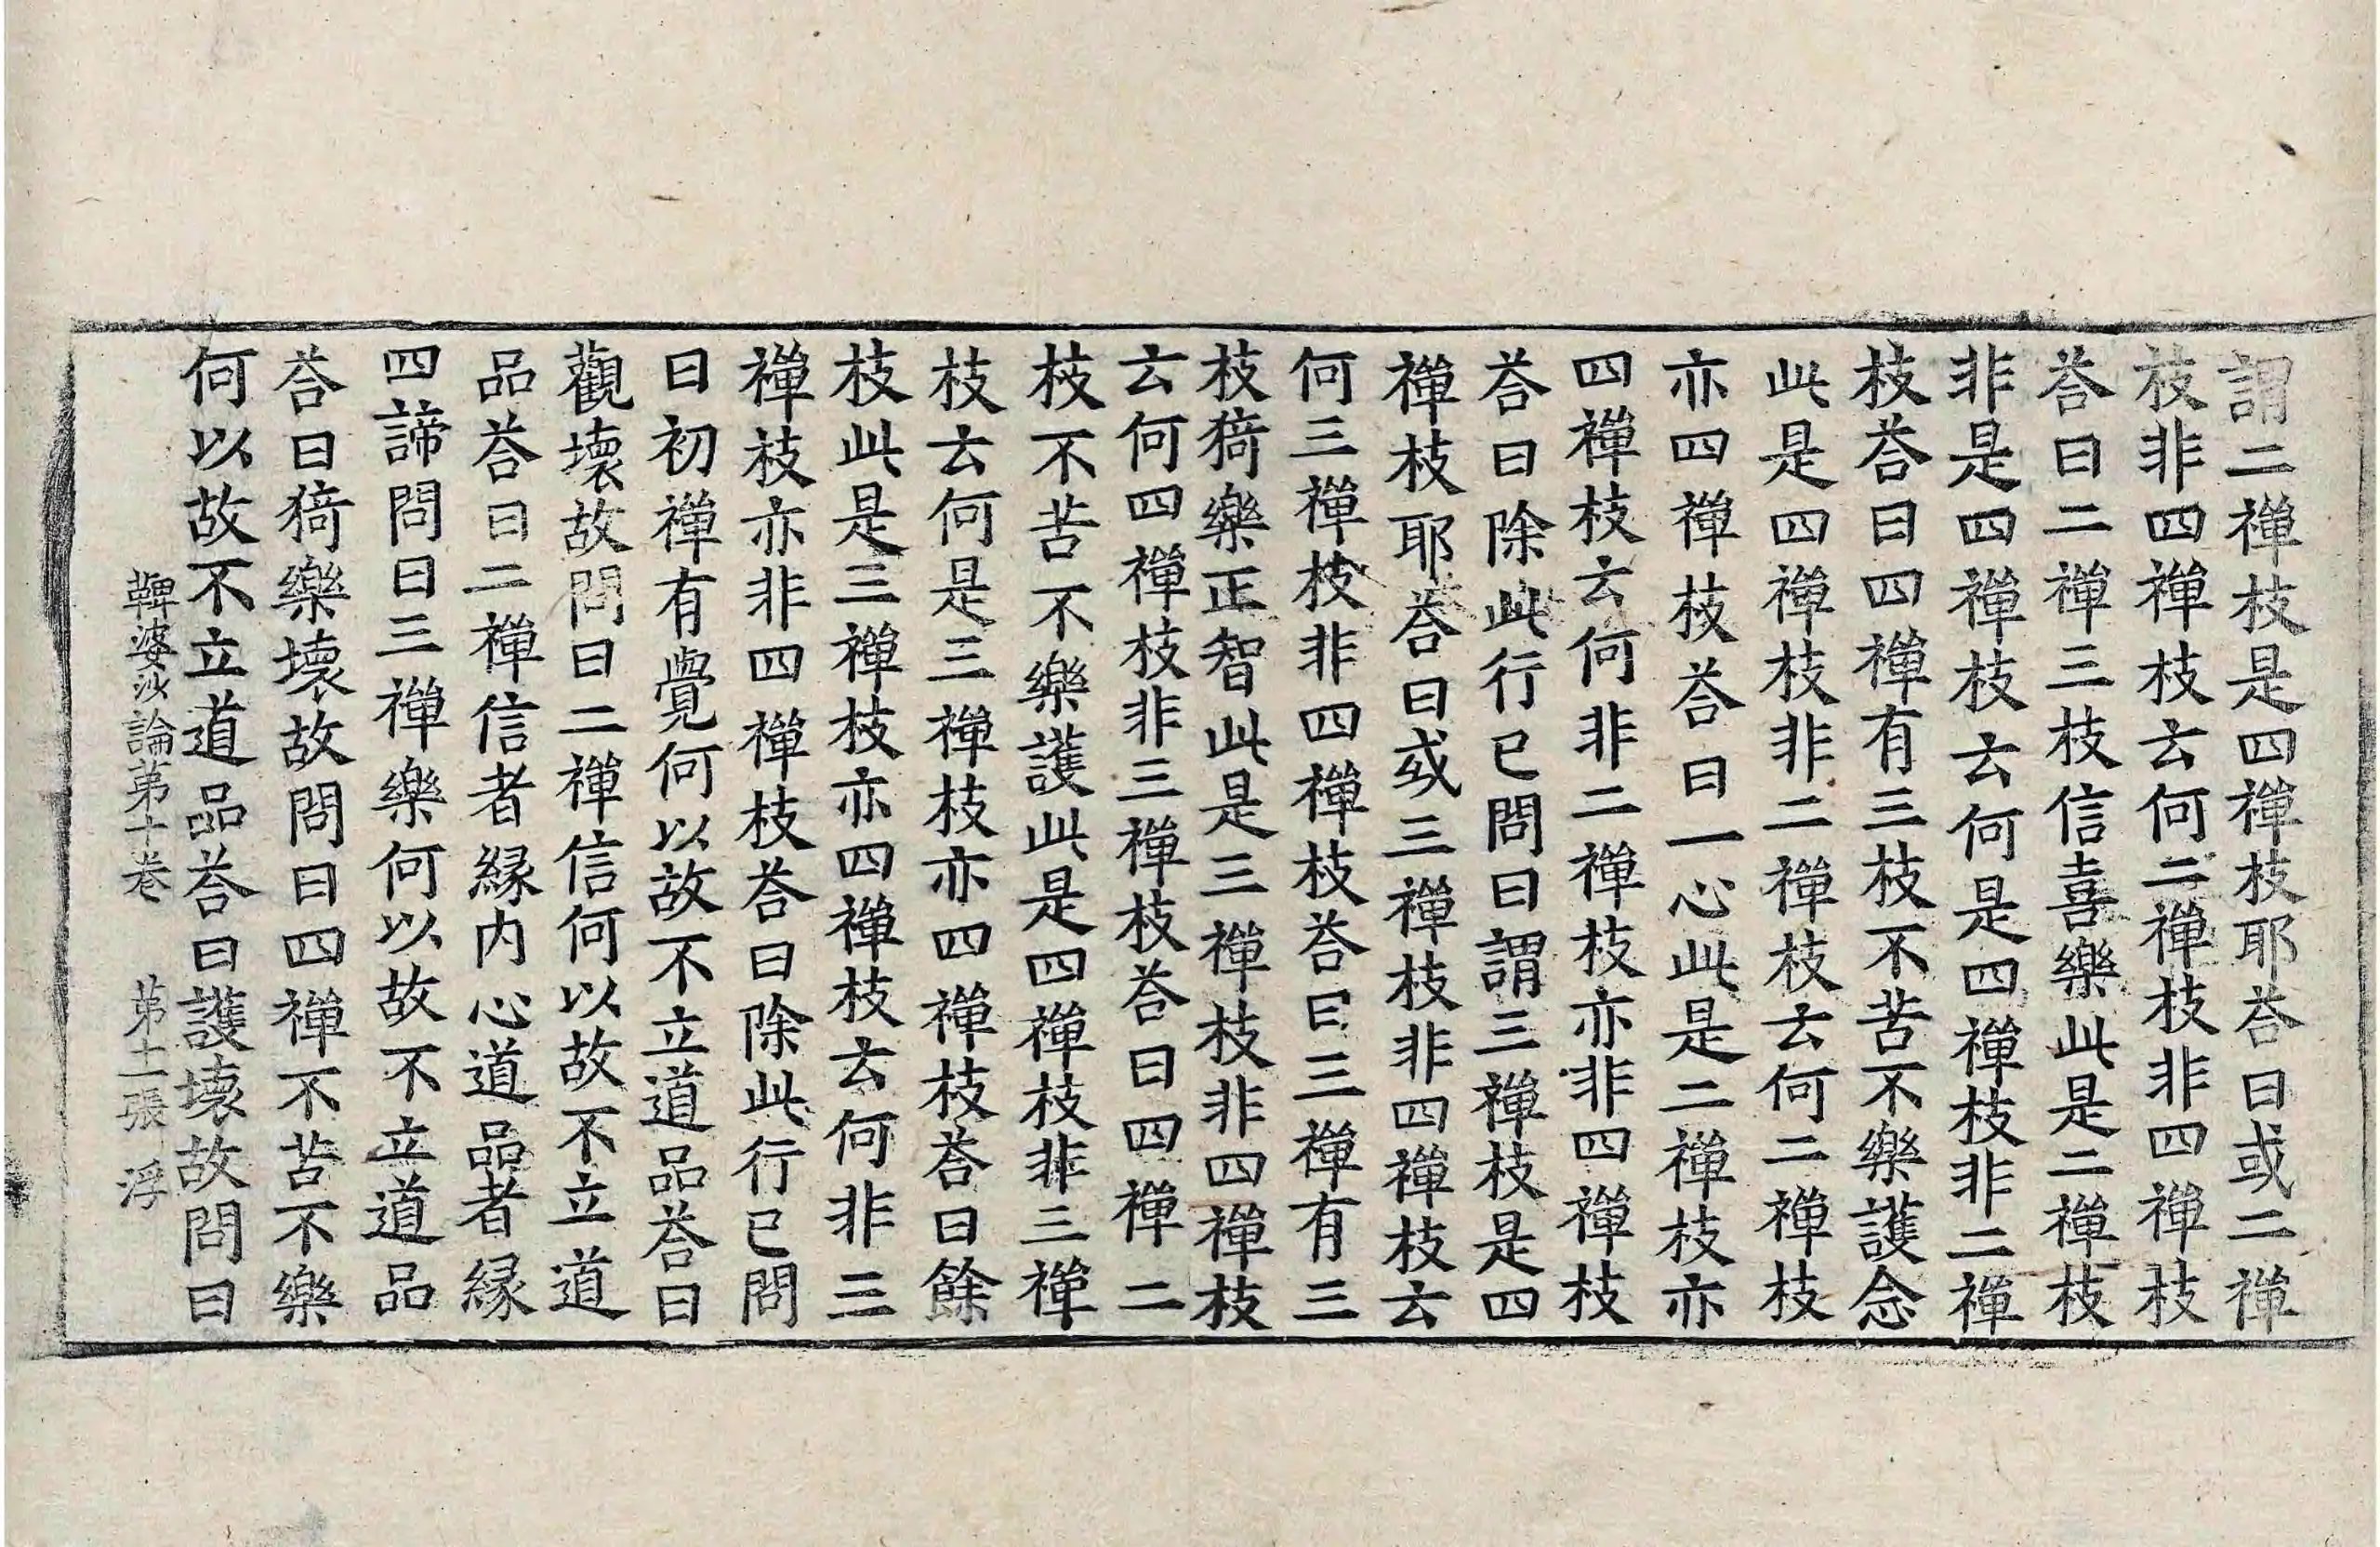 謂二禪枝是四禪枝耶荅曰或二禪
枝非四禪枝云何二禪枝非四禪枝
荅曰二禪三枝信喜樂此是二禪枝
非是四禪枝云何是四禪枝非二禪
枝荅曰四禪有三枝不苦不樂護念
此是四禪枝非二禪枝云何二禪枝
亦四禪枝荅曰一心此是二禪枝亦
四禪枝云何非二禪枝亦非四禪枝
荅曰除此行已問曰謂三禪枝是四
禪枝耶荅曰或三禪枝非四禪枝云
何三禪枝非四禪枝荅曰三禪有三
枝猗樂正智此是三禪枝非四禪枝
云何四禪枝非三禪枝荅曰四禪二
枝不苦不樂護此是四禪枝非三禪
枝云何是三禪枝亦四禪枝荅曰餘
枝此是三禪枝亦四禪枝云何非三
禪枝亦非四禪枝荅曰除此行已問
曰初禪有覺何以故不立道品荅曰
觀壞故問曰二禪信何以故不立道
品荅曰二禪信者緣内心道品者緣
四諦問曰三禪樂何以故不立道品
荅曰猗樂壞故問曰四禪不苦不樂
何以故不立道品荅曰護壞故問曰
鞞婆沙論第十卷 第十二張 浮